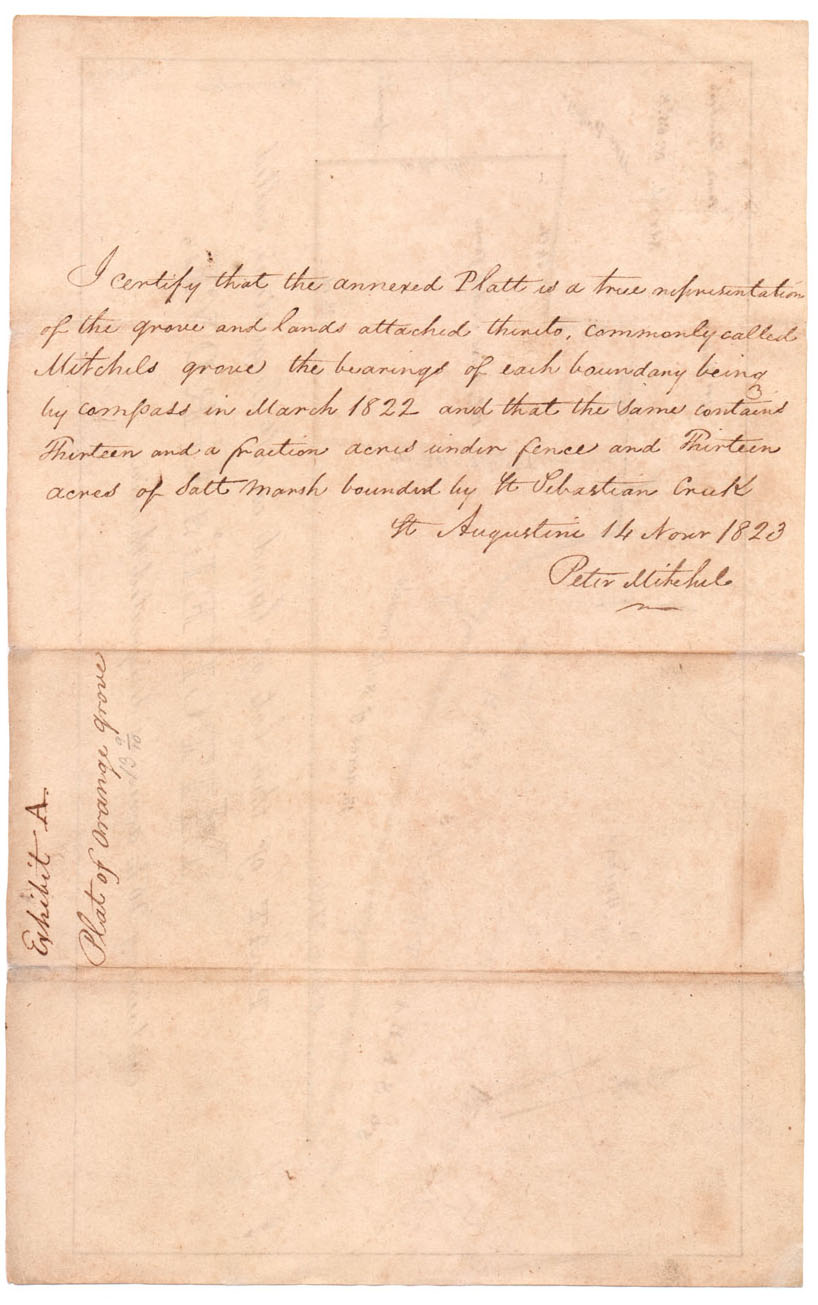 I certify that the annexed Platt is a true representation
of the grove and lands attached thereto, commonly called
Mitchels grove the bearings of each boundary being
by compass in March 1822 and that the same contains
3
Thirteen and a fraction acres under fence and Thirteen
acres of Salt Marsh bounded by St Sebastian Creek
St Augustine 14 Novr 1823
Peter Mitchel
Exhibit A.
Plat of Orange Grove
13 9/10